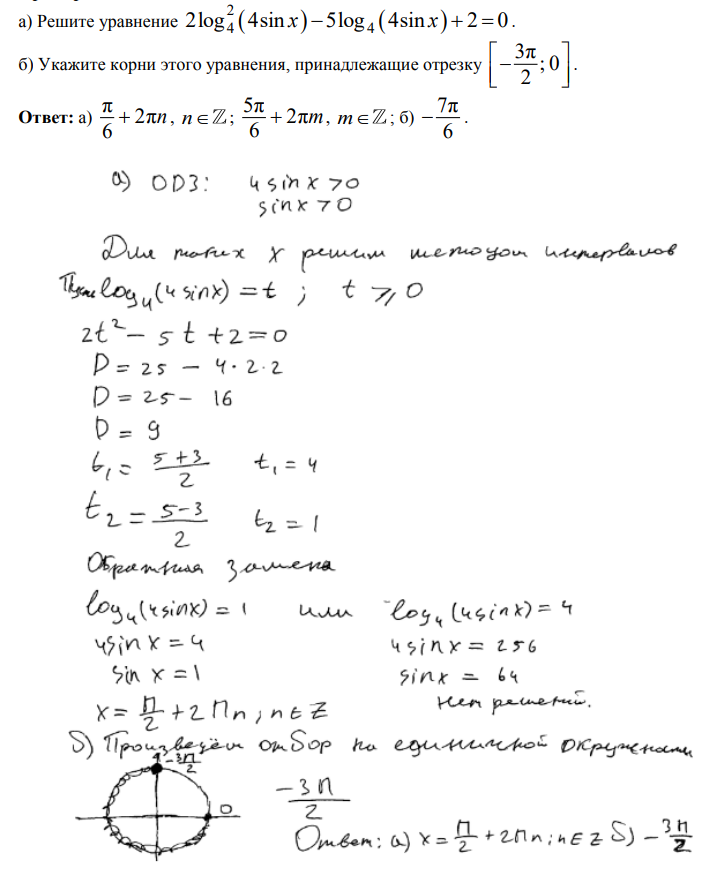 а) Решите уравнение 2log₄²(4sin x) − 5log₄(4sin x) + 2 = 0.
б) Укажите корни этого уравнения, принадлежащие отрезку [−3π/2; 0].
Ответ: а) π/6 + 2πn, n ∈ ℤ; 5π/6 + 2πm, m ∈ ℤ; б) −7π/6.
а) ОДЗ: 4 sin x > 0
sin x > 0
Для таких x решим методом интервалов
Пусть log₄(4 sinx) = t ; t ⩾ 0
2t² − 5t + 2 = 0
D = 25 − 4·2·2
D = 25 − 16
D = 9
t₁ = (5+3)/2 t₁ = 4
t₂ = (5−3)/2 t₂ = 1
Обратная замена
log₄(4sinx) = 1 или log₄(4sinx) = 4
4sin x = 4 4sinx = 256
sin x = 1 sinx = 64
x = П/2 + 2Пn ; n ∈ Z Нет решений.
б) Произведём отбор на единичной окружности
−3П/2
0
−3П/2
Ответ: а) x = П/2 + 2Пn ; n ∈ Z б) −3П/2